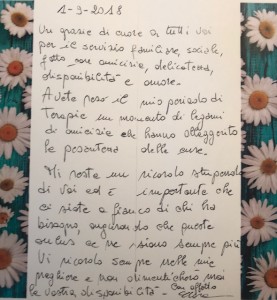 1-9-2018
Un grazie di cuore a tutti voi
per il servizio familiare, sociale,
fatto con amicizia, delicatezza,
disponibilità e amore.
Avete reso il mio periodo di
Terapie un momento di legami
di amicizie che hanno alleggerito
la pesantezza delle cure.
Mi resta un ricordo stupendo
di voi ed è importante che
ci siate a fianco di chi ha
bisogno, augurando che queste
onlus ce ne siano sempre più
Vi ricordo sempre nelle mie
preghiere e non dimenticherò mai
la vostra disponibilità. Con affetto